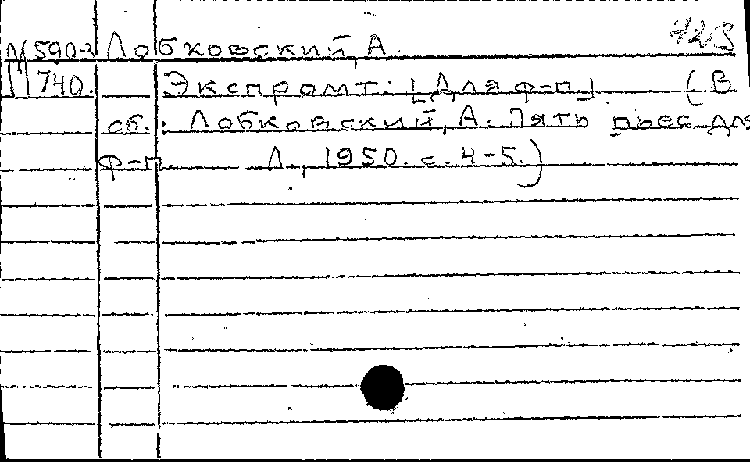 М 590-2 Лобковский, А.
М 740. Экспромт: [Для ф-п]. (В
сб.: Лобковский, А. Пять пьес для
ф-п. Л., 1950. с. 4-5.)